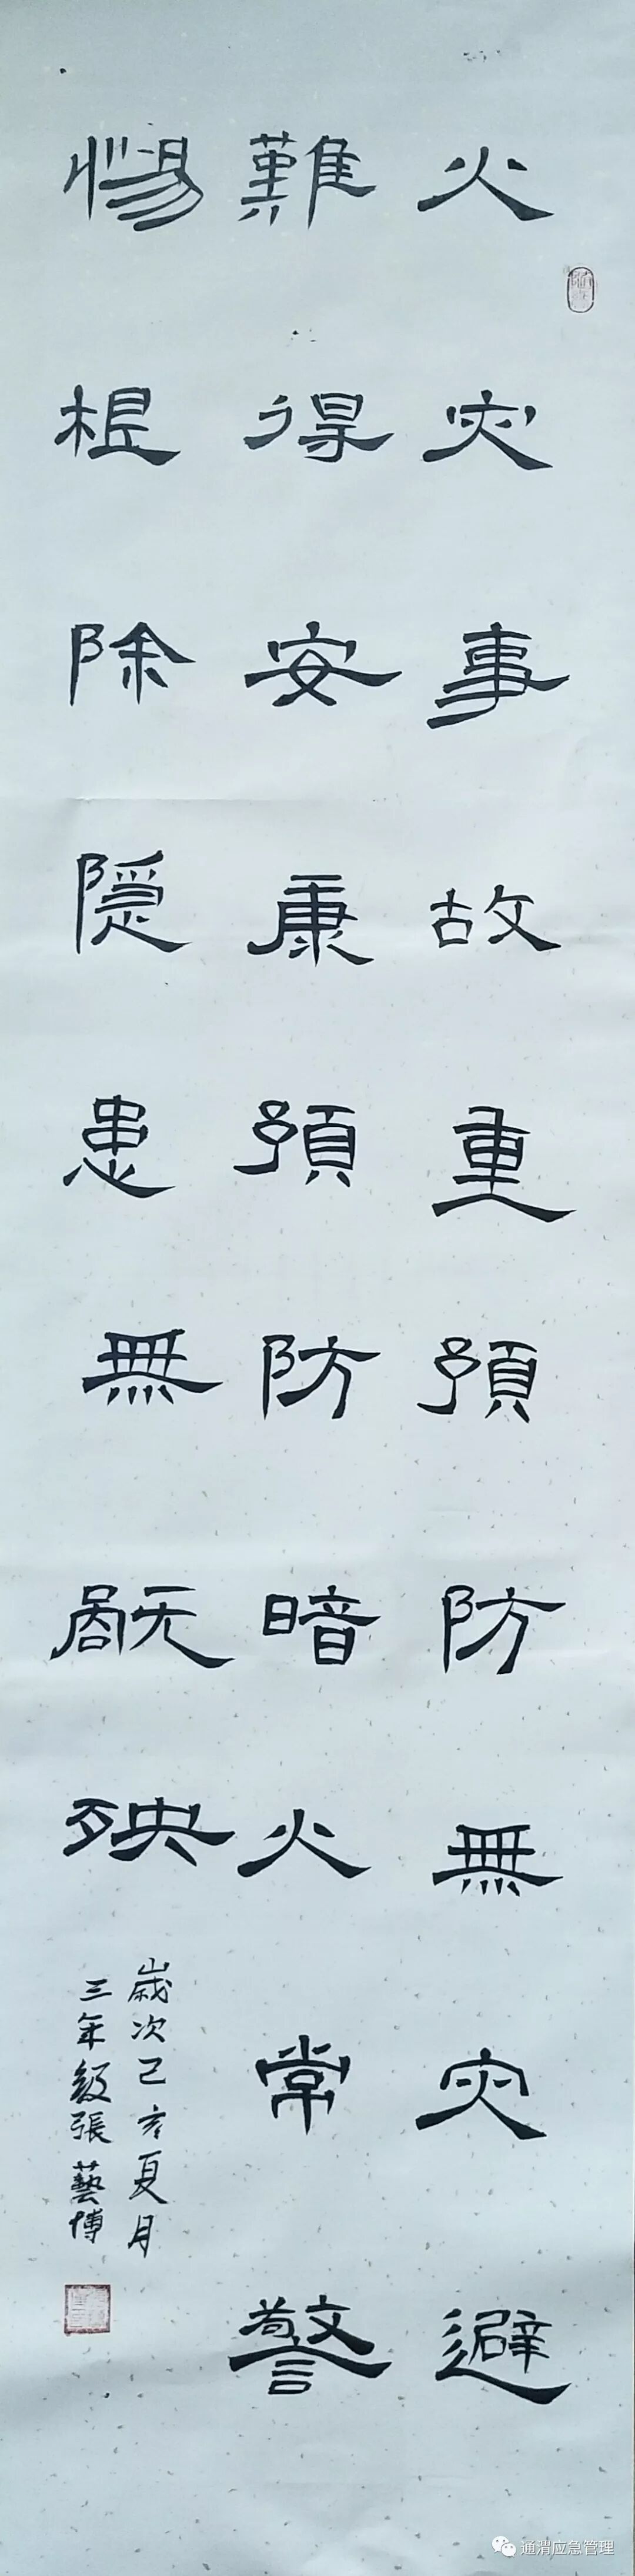 火灾事故重預防無灾避
難得安康預防暗火常警
惕根除隱患無旤殃
歲次己亥夏月
三年級張藝博
通渭应急管理